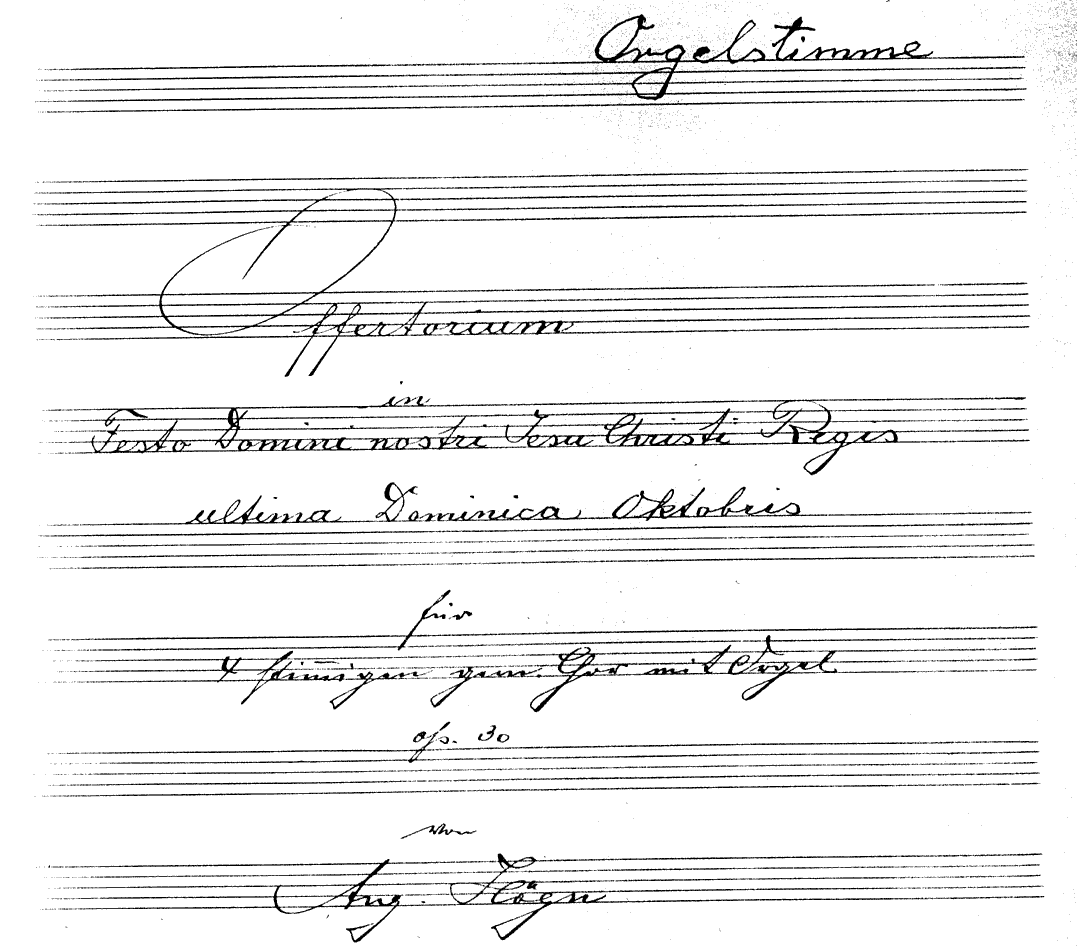 Orgelstimme
Offertorium
in
Festo Domini nostri Jesu Christi Regis
ultima Dominica Oktobris
für
4 stim̅igen gem. Chor mit Orgel
op. 30
von
Aug. Högn